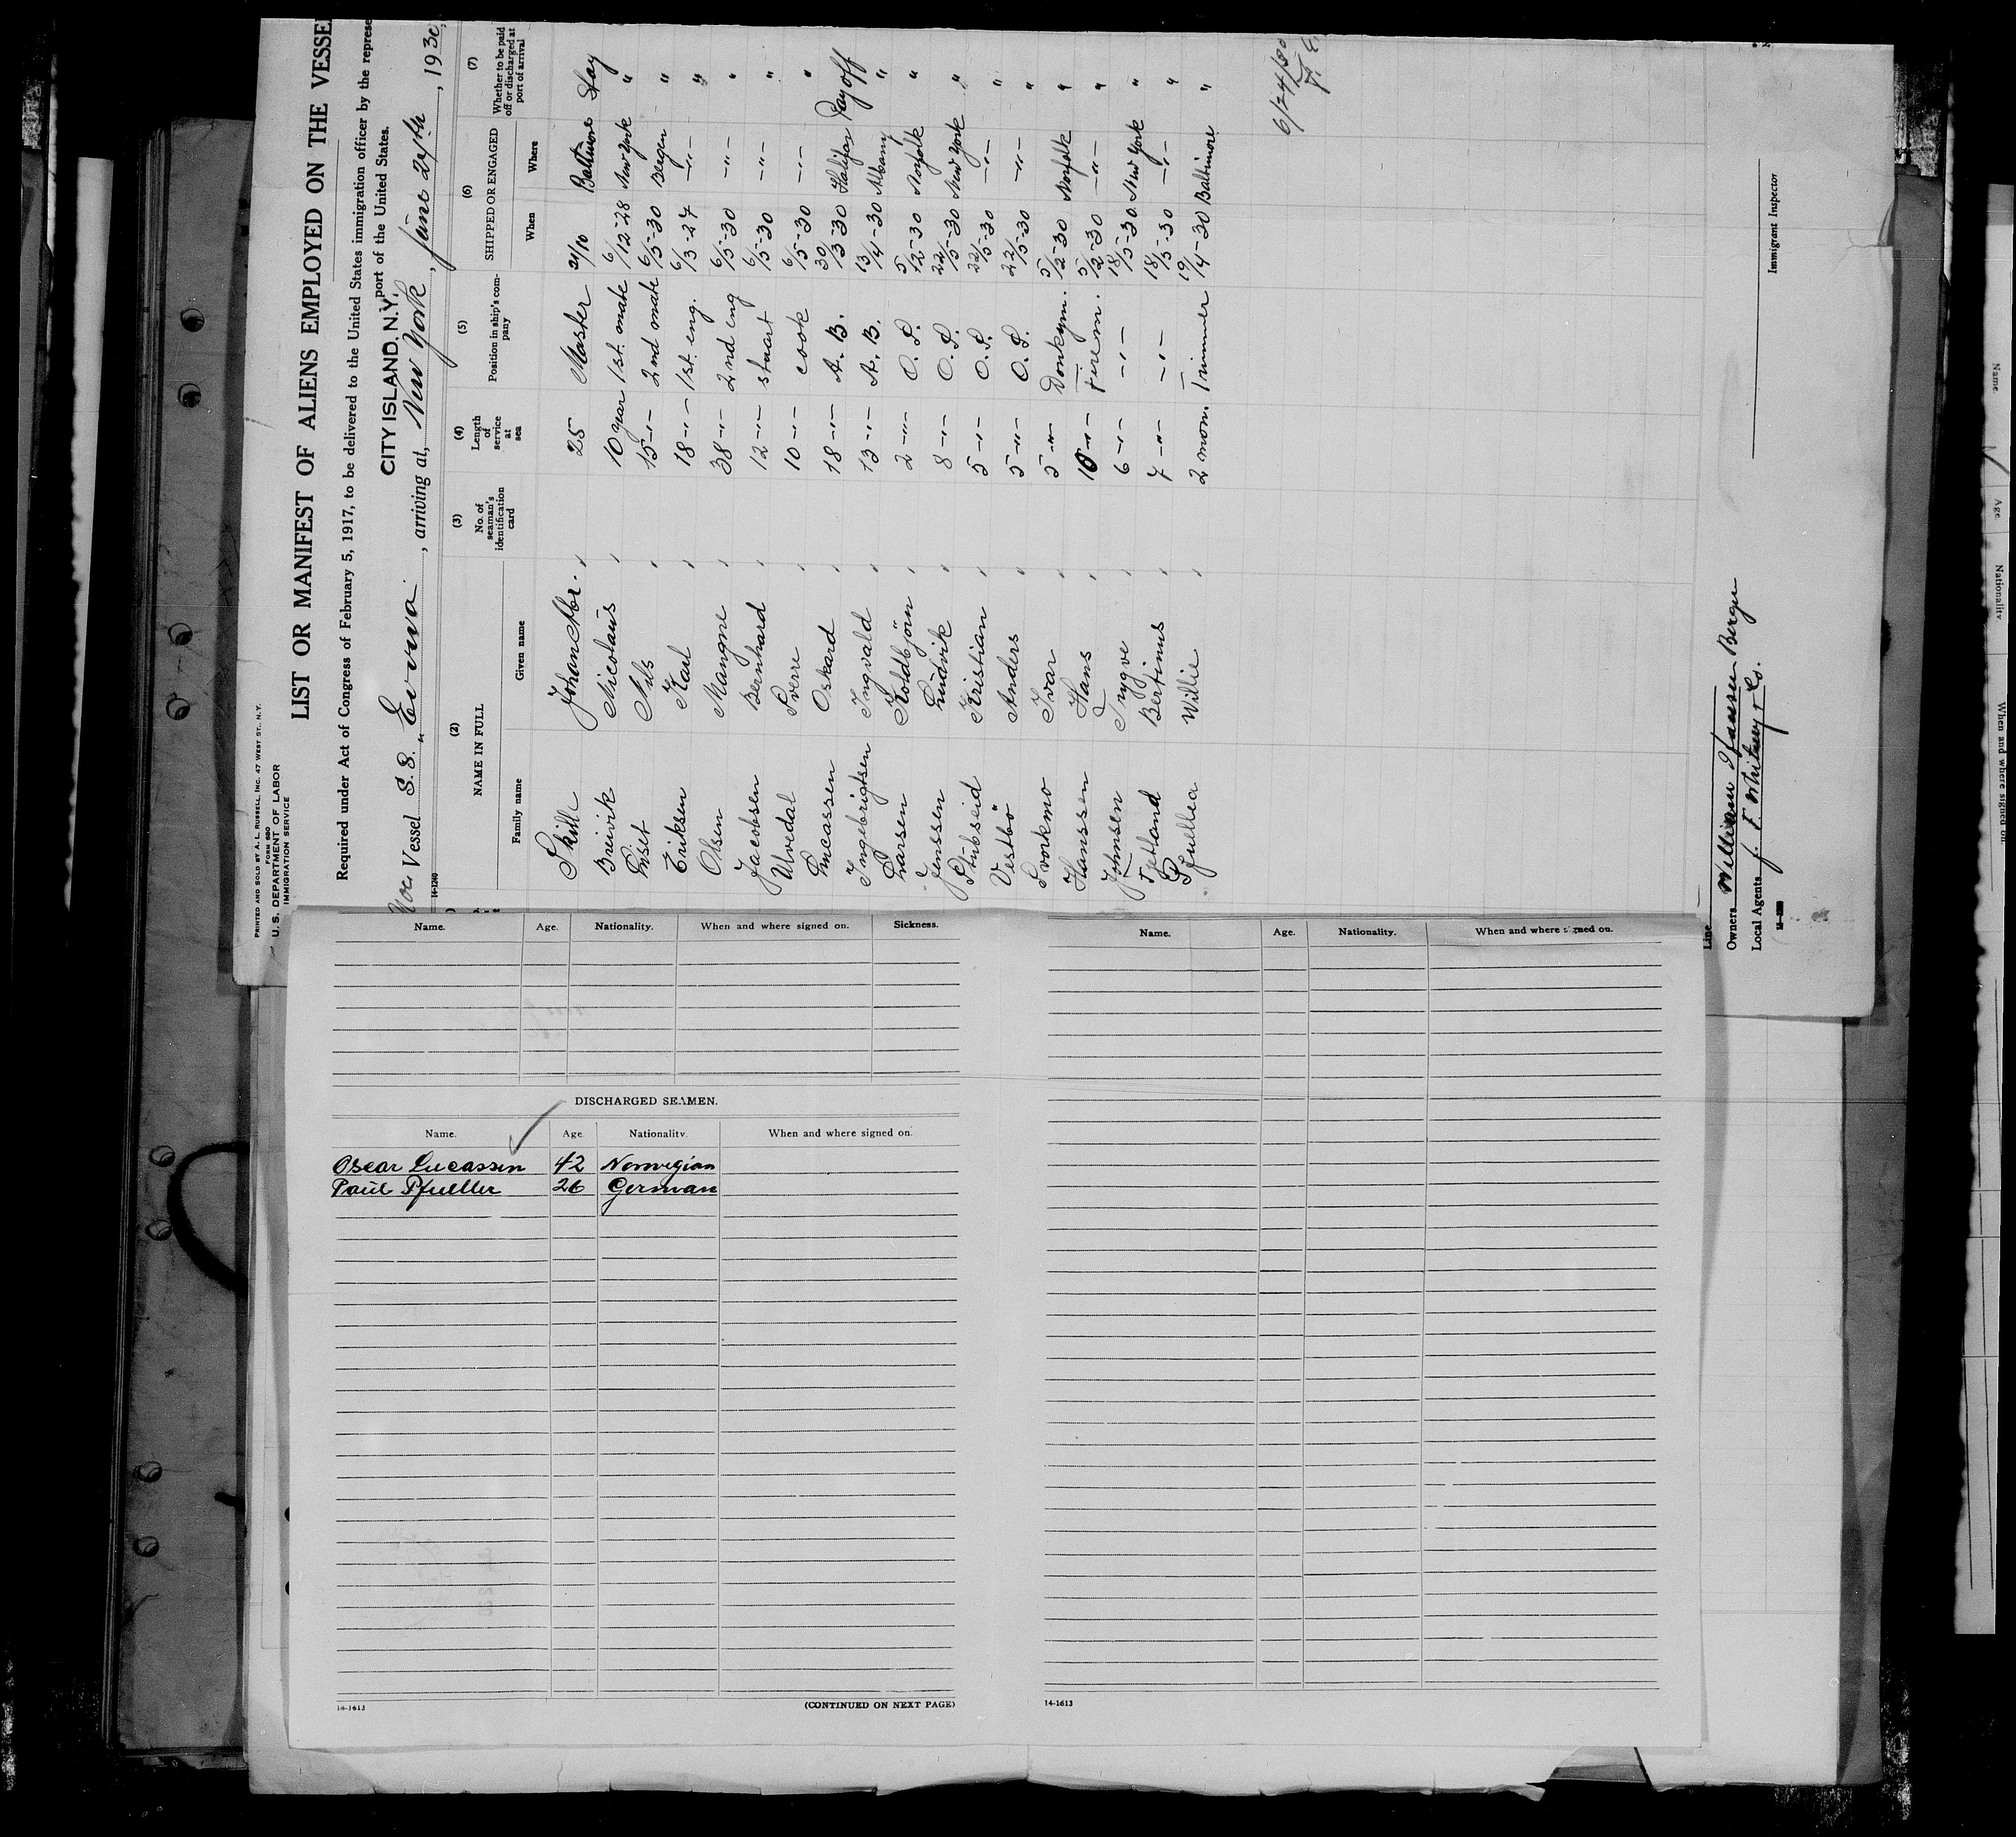 PRINTED AND SOLD BY A. L. RUSSELL, INC. 47 WEST ST., N.Y.
U. S. DEPARTMENT OF LABOR
FORM 680
IMMIGRATION SERVICE
LIST OR MANIFEST OF ALIENS EMPLOYED ON THE VESSEL
Required under Act of Congress of February 5, 1917, to be delivered to the United States immigration officer by the represe
CITY ISLAND, N.Y. port of the United States.
Nor. Vessel S.S. „Eviva, arriving at, New York, June 24th, 1930,
14-1240
(2) (3) (4) (5) (6) (7)
NAME IN FULL No. of seaman's identification card Length of service at sea Position in ship's company SHIPPED OR ENGAGED Whether to be paid off or discharged at port of arrival
Family name Given name When Where
Skill 25 Master 21/10 Baltimore Stay
Breivik Nicolaus 10 year 1st. mate 6/12-28 New York "
Nils 15 -"- 2nd mate 6/5-30 Bergen "
Eriksen Karl 18 -"- 1st. eng. 6/3-27 -"- "
Olsen Mangne 38 -"- 2nd eng 6/5-30 -"- "
Jacobsen Bernhard 12 -"- stuart 6/5-30 -"- "
Utvedal Sverre 10 -"- cook 6/5-30 -"- "
Lucassen Oskard 18 -"- A. B. 30/3-30 Halifax Pay off
Ingebrigtsen Ingvald 13 -"- A. B. 13/4-30 Albany "
Larsen Koldbjörn 2 -"- O. S. 5/12-30 Norfolk "
Jenssen Ludvik 8 -"- O. S. 22/5-30 New York "
Stubseid Kristian 5 -"- O. S. 22/5-30 -"- "
Vestbö Anders 5 -"- O. S. 22/5-30 -"- "
Svorkmo Ivar 5 -"- Donkeym. 5/2-30 Norfolk "
Hanssen Hans 10 -"- Firem. 5/12-30 -"- "
Johnsen Trygve 6 -"- -"- 18/5-30 New York "
Tytland Bertinus 7 -"- -"- 18/5-30 -"- "
Pfuellea Willie 2 mon. Trimmer 19/4-30 Baltimore "
6/24/30
Line
Owners William Hansen Bergen
Local Agents J. F. Whitney & Co.
Immigrant Inspector
Name. Age. Nationality. When and where signed on. Sickness.
DISCHARGED SEAMEN.
Name. Age. Nationality. When and where signed on.
Oscar Lucassen 42 Norwegian
Paul Pfueller 26 German
14-1613 (CONTINUED ON NEXT PAGE)
Name. Age. Nationality. When and where signed on.
14-1613
Name Age Nationality When and where signed on.